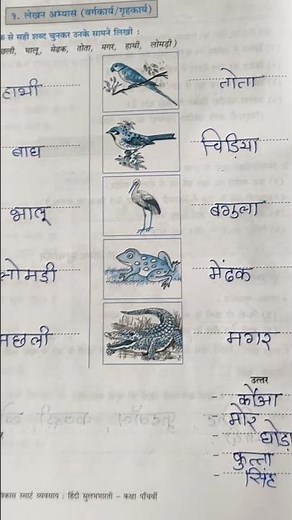 १. लेखन अभ्यास (वर्गकार्य/गृहकार्य)
क से सही शब्द चुनकर उनके सामने लिखो :
छली, भालू, मेंढक, तोता, मगर, हाथी, लोमड़ी )
हाथी तोता
बाघ चिड़िया
भालू बगुला
लोमडी मेंढक
मछली मगर
उत्तर
कौआ
मोर
घोड़ा
कुत्ता
सिंह
विकास स्मार्ट व्यवसाय : हिंदी सुलभभारती - कक्षा पाँचवीं